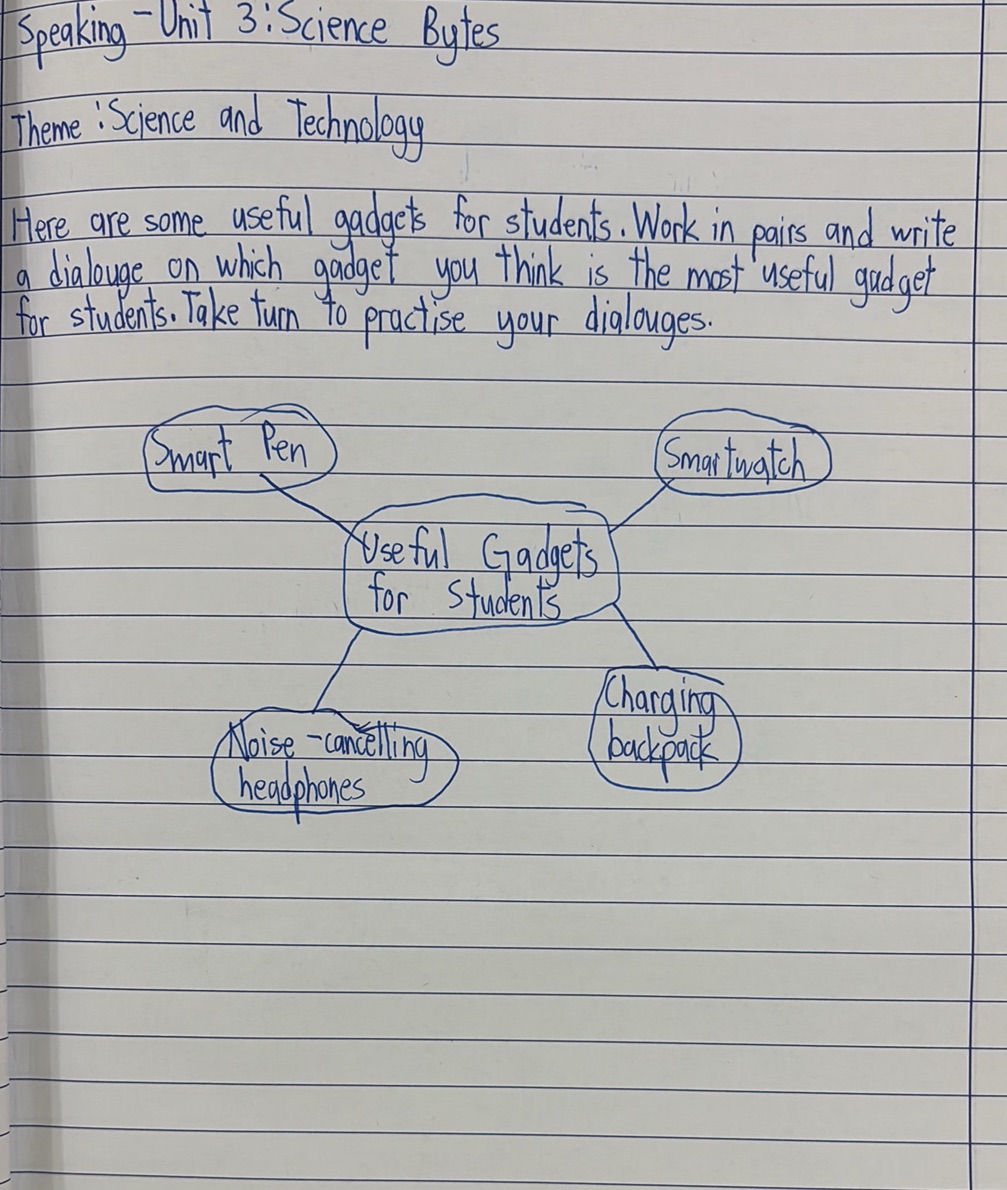 Speaking - Unit 3: Science Bytes
Theme: Science and Technology
Here are some useful gadgets for students. Work in pairs and write
a dialouge on which gadget you think is the most useful gadget
for students. Take turn to practise your dialouges.
Smart Pen
Smartwatch
Useful Gadgets
for Students
Charging
backpack
Noise-cancelling
headphones